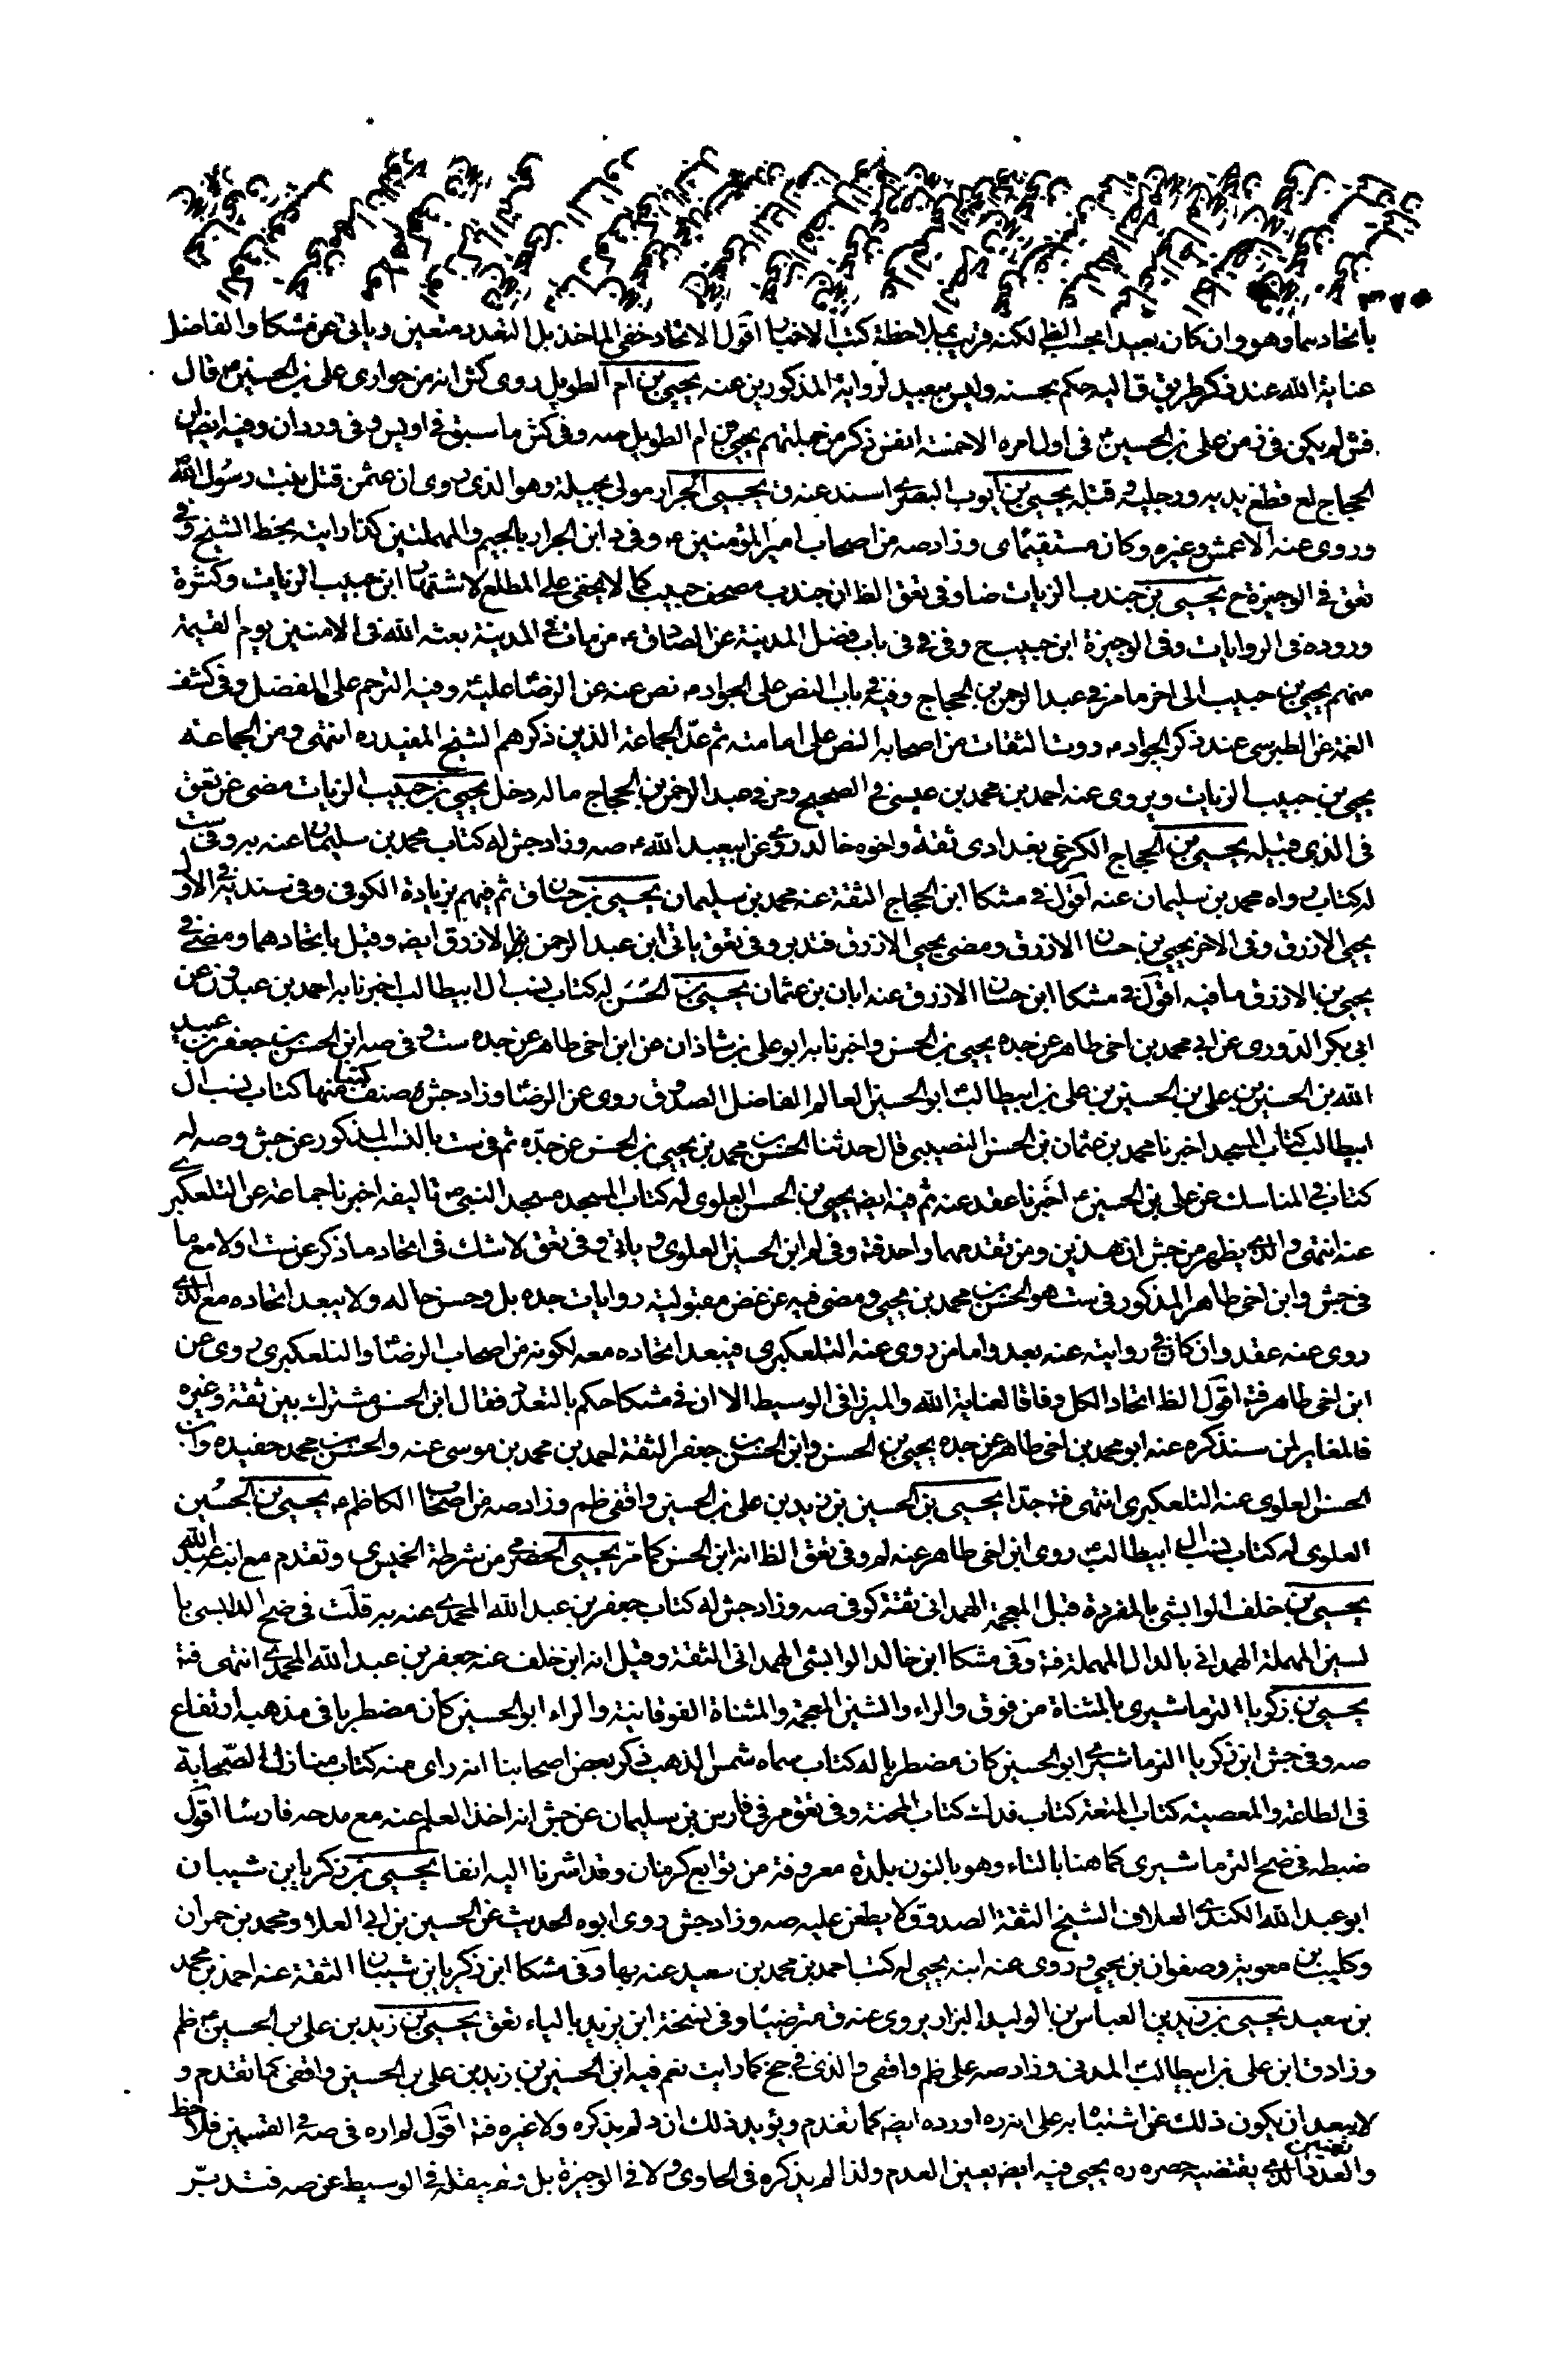 باتحادهما وهو وان كان بعيدا بحسب الظ لكنه قريب بملاحظة كتب الاخبار اقول الاتحاد خفى الماخذ بل التعدد متعين وياتى عن مشكا والفاضل
عناية الله عند ذكر طريق ق اليه حكم بحسنه وليس ببعيد لرواية المذكورين عنه يحيى بن ام الطويل روى كش انه من حوارى على بن الحسين ع قال
فش لم يكن فى زمن على بن الحسين ع فى اول امره الا خمسة انفس ذكر من جملتهم يحيى بن ام الطويل صه وفى كش ما سبق فى اويس وفى وردان وفيه ايضا ان
الحجاج لع قطع يديه ورجليه وقتله يحيى بن ايوب البصرى اسند عنه ق يحيى الجرار مولى بجيلة وهو الذى روى ان عثمن قتل بنت رسول الله
وروى عنه الاعمش وغيره وكان مستقيما ى وزاد صه من اصحاب امير المؤمنين ع وفى د ابن الجرار بالجيم والمهملتين كذا رايت بخط الشيخ وفى
تعق فى الوجيزة ح يحيى بن جندب الزيات ضا وفى تعق الظ ان جندب مصحف حبيب كما لا يخفى على المطلع لاشتهار ابن حبيب الزيات وكثرة
وروده فى الروايات وفى الوجيزة ابن حبيب ح وفى فى باب فضل المدينة عن الصادق ع من مات فى المدينة بعثه الله فى الامنين يوم القيمة
منهم يحيى بن حبيب الى اخر ما مر فى عبد الرحمن بن الحجاج وفيه فى باب النص على الجواد ع نص عنه عن الرضا عليه وفيه الترحم على المفضل وفى كشف
الغمة عن الطبرسى عند ذكر الجواد ع روت الثقات من اصحابه النص على امامته ثم عد الجماعة الذين ذكرهم الشيخ المفيد ره انتهى ومن الجماعة
يحيى بن حبيب الزيات ويروى عنه احمد بن محمد بن عيسى فى الصحيح ومر فى عبد الرحمن بن الحجاج ما له دخل يحيى بن حبيب الزيات مضى عن تعق
فى الذى قبيله يحيى بن الحجاج الكرخى بغدادى ثقة واخوه خالد روى عن ابيعبد الله ع صه وزاد جش له كتاب محمد بن سليمان عنه به وفى ست
له كتاب رواه محمد بن سليمان عنه اقول فى مشكا ابن الحجاج الثقة عنه محمد بن سليمان يحيى بن حسان ق ثم فيهم بزيادة الكوفى وفى سند فى الاول
يحيى الازرق وفى الاخر يحيى بن حسان الازرق ومضى يحيى الازرق فتدبر وفى تعق ياتى ابن عبد الرحمن الازرق ايضه وقيل باتحادهما ومضى فى
يحيى بن الازرق ما فيه اقول فى مشكا ابن حسان الازرق عنه ابان بن عثمان يحيى بن الحسن له كتاب نسب ال ابيطالب اخبرنا به احمد بن عبدون عن
ابى بكر الدورى عن ابى محمد بن اخى طاهر عن جده يحيى بن الحسن واخبرنا به ابو على بن شاذان عن ابن اخى طاهر عن جده ست وفى صه ابن الحسن بن جعفر بن عبيد
الله بن الحسين بن على بن الحسين بن على بن ابيطالب ابو الحسين العالم الفاضل الصدوق روى عن الرضا وزاد جش صنف كتبا منها كتاب نسب ال
ابيطالب كتاب المسجد اخبرنا محمد بن عثمان بن الحسن النصيبى قال حدثنا الحسن بن محمد بن يحيى بن الحسن عن جده ثم فى ست بالنسب المذكور عن جش وصه له
كتاب فى المناسك عن على بن الحسين ع اخبرنا عقد عنه ثم فيه ايضه يحيى بن الحسن العلوى له كتاب المسجد مسجد النبى ص تاليفه اخبرنا جماعة عن التلعكبرى
عنه انتهى والذى يظهر من جش ان هذين ومن تقدمهما واحد فتد وفى لم ابن الحسين العلوى وياتى وفى تعق لا شك فى اتحاد ما ذكر عن ست اولا مع ما
فى جش وابن اخى طاهر المذكور فى ست هو الحسن بن محمد بن يحيى ومضى فيه عن غض مقبولية روايات جده بل وحسن حاله ولا يبعد اتحاده مع الذى
روى عنه عقد وان كان فى روايته عنه بعد واما من روى عنه التلعكبرى فيبعد اتحاده معه لكونه من اصحاب الرضا والتلعكبرى روى عن
ابن اخى طاهر فتد اقول الظ اتحاد الكل وفاقا لعناية الله والميرزا فى الوسيط الا ان فى مشكا حكم بالتعدد فقال ابن الحسن مشترك بين ثقة وغيره
فالمغاير لمن سنذكره عنه ابو محمد بن اخى طاهر عن جده يحيى بن الحسن وابن الحسن بن جعفر الثقة احمد بن محمد بن موسى عنه والحسن بن محمد حفيده وابن
الحسن العلوى عنه التلعكبرى انتهى فتد جدا يحيى بن الحسين بن زيد بن على بن الحسين واقفى ظم وزاد صه من اصحاب الكاظم ع يحيى بن الحسين
العلوى له كتاب نسب ال ابيطالب روى ابن اخى طاهر عنه لم وفى تعق الظ انه ابن الحسن كما مر يحيى الحضرمى من شرطة الخميس ى وتقدم مع ابنه عبد الله
يحيى بن خلف الوابشى بالمفردة قبل المعجمة الهمدانى ثقة كوفى صه وزاد جش له كتاب جعفر بن عبد الله المحمدى عنه به قلت فى ضح الدالبسى با
لسين المهملة الهمدانى بالدال المهملة فتد وفى مشكا ابن خالد الوابشى الهمدانى الثقة وقيل انه ابن خلف عنه جعفر بن عبد الله المحمدى انتهى فتد
يحيى بن زكريا الترماشيرى بالمثناة من فوق والراء والشين المعجمة والمثناة الفوقانية والراء ابو الحسين كان مضطربا فى مذهبه ارتفاع
صه وفى جش ابن زكريا الترماشيرى ابو الحسين كان مضطربا له كتاب سماه شمس الذهب ذكر بعض اصحابنا انه راى منه كتاب منازل الصحابة
فى الطاعة والمعصية كتاب المتعة كتاب فدك كتاب المحنة وفى تعق مر فى فارس بن سليمان عن جش انه اخذ العلم عنه مع مدحه فارسا اقول
ضبطه فى ضح الترماشيرى كما هنا بالتاء وهو بالنون بلدة معروفة من توابع كرمان وقد اشرنا اليه انفا يحيى بن زكريا بن شيبان
ابو عبد الله الكندى العلاف الشيخ الثقة الصدوق لا يطعن عليه صه وزاد جش روى ابوه الحديث عن الحسين بن ابى العلا ومحمد بن حمران
وكليب بن معوية وصفوان بن يحيى وروى عنه ابنه يحيى له كتب احمد بن محمد بن سعيد عنه بها وفى مشكا ابن زكريا بن شيبان الثقة عنه احمد بن محمد
بن سعيد يحيى بن زيد بن العباس بن الوليد البزاز يروى عنه ق مترضيا وفى نسخة ابن يزيد بالياء تعق يحيى بن زيد بن على بن الحسين ع ظم
وزاد ق ابن على بن ابيطالب المدنى وزاد صه على ظم واقفى والذى فى جخ كما رايت نعم فيه ابن الحسين بن زيد بن على بن الحسين واقفى كما تقدم و
لا يبعد ان يكون ذلك عن اشتباه به على انه ره اورده ايضه كما تقدم ويؤيد ذلك ان د لم يذكره ولا غيره فتد اقول لم اره فى صه فى القسمين فلاحظ
والعدد الذى يقتضيه حصره ره يحيى فيه ايضه يعين العدم ولذا لم يذكره فى الحاوى ولا فى الوجيزة بل ولم ينقله فى الوسيط عن صه فتدبر